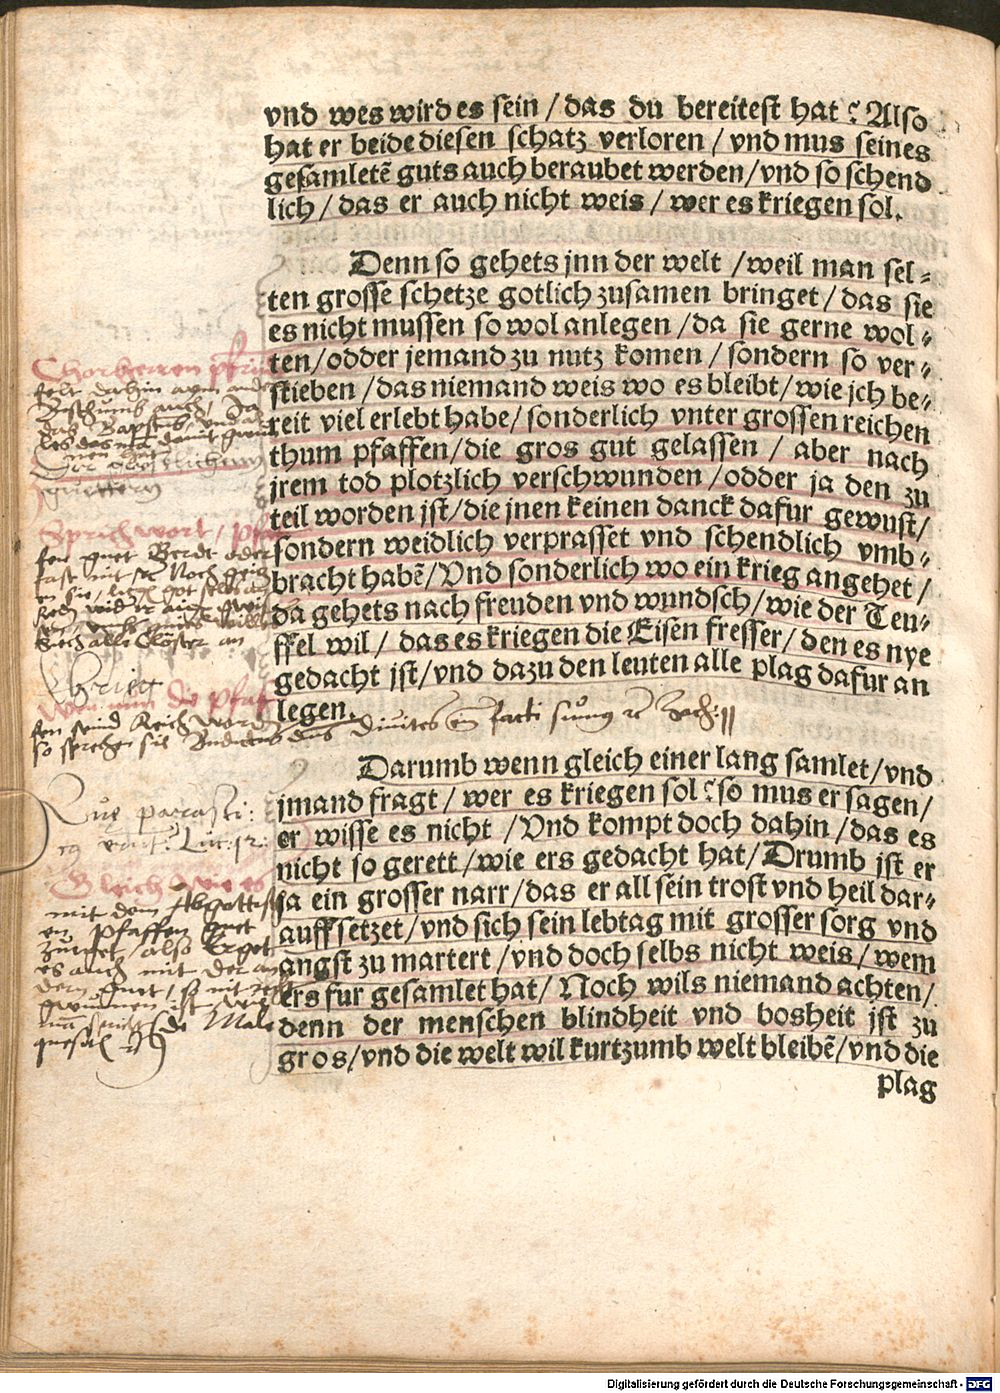 vnd wes wird es sein / das du bereitest hat? Also
hat er beide diesen schatz verloren / vnd mus seines
gesamletẽ guts auch beraubet werden / vnd so schend
lich / das er auch nicht weis / wer es kriegen sol.
Denn so gehets jnn der welt / weil man sel-
ten grosse schetze gotlich zusamen bringet / das sie
es nicht mussen so wol anlegen / da sie gerne wol-
ten / odder jemand zu nutz komen / sondern so ver-
stieben / das niemand weis wo es bleibt / wie jch be-
reit viel erlebt habe / sonderlich vnter grossen reichen
thum pfaffen / die gros gut gelassen / aber nach
jrem tod plotzlich verschwunden / odder ja den zu
teil worden jst / die jnen keinen danck dafur gewust /
sondern weidlich verprasset vnd schendlich vmb-
bracht habẽ / Vnd sonderlich wo ein krieg angehet /
da gehets nach freuden vnd wundsch / wie der Teu-
ffel wil / das es kriegen die Eisen fresser / den es nye
gedacht jst / vnd dazu den leuten alle plag dafur an
legen.
Darumb wenn gleich einer lang samlet / vnd
jmand fragt / wer es kriegen sol? so mus er sagen /
er wisse es nicht / Vnd kompt doch dahin / das es
nicht so gerett / wie ers gedacht hat / Drumb jst er
ja ein grosser narr / das er all sein trost vnd heil dar-
auff setzet / vnd sich sein lebtag mit grosser sorg vnd
angst zu martert / vnd doch selbs nicht weis / wem
ers fur gesamlet hat / Noch wils niemand achten /
denn der menschen blindheit vnd bosheit jst zu
gros / vnd die welt wil kurtzumb welt bleibẽ / vnd die
plag
Chorherren
Sprichwort /
Krieg
Que parasti:
Luc: 12:
Gleich wie es
mit dem Abgottisch
en Pfaffen guet
zueget / also Erget
es auch mit der an
dern guet /
Digitalisierung gefördert durch die Deutsche Forschungsgemeinschaft - DFG